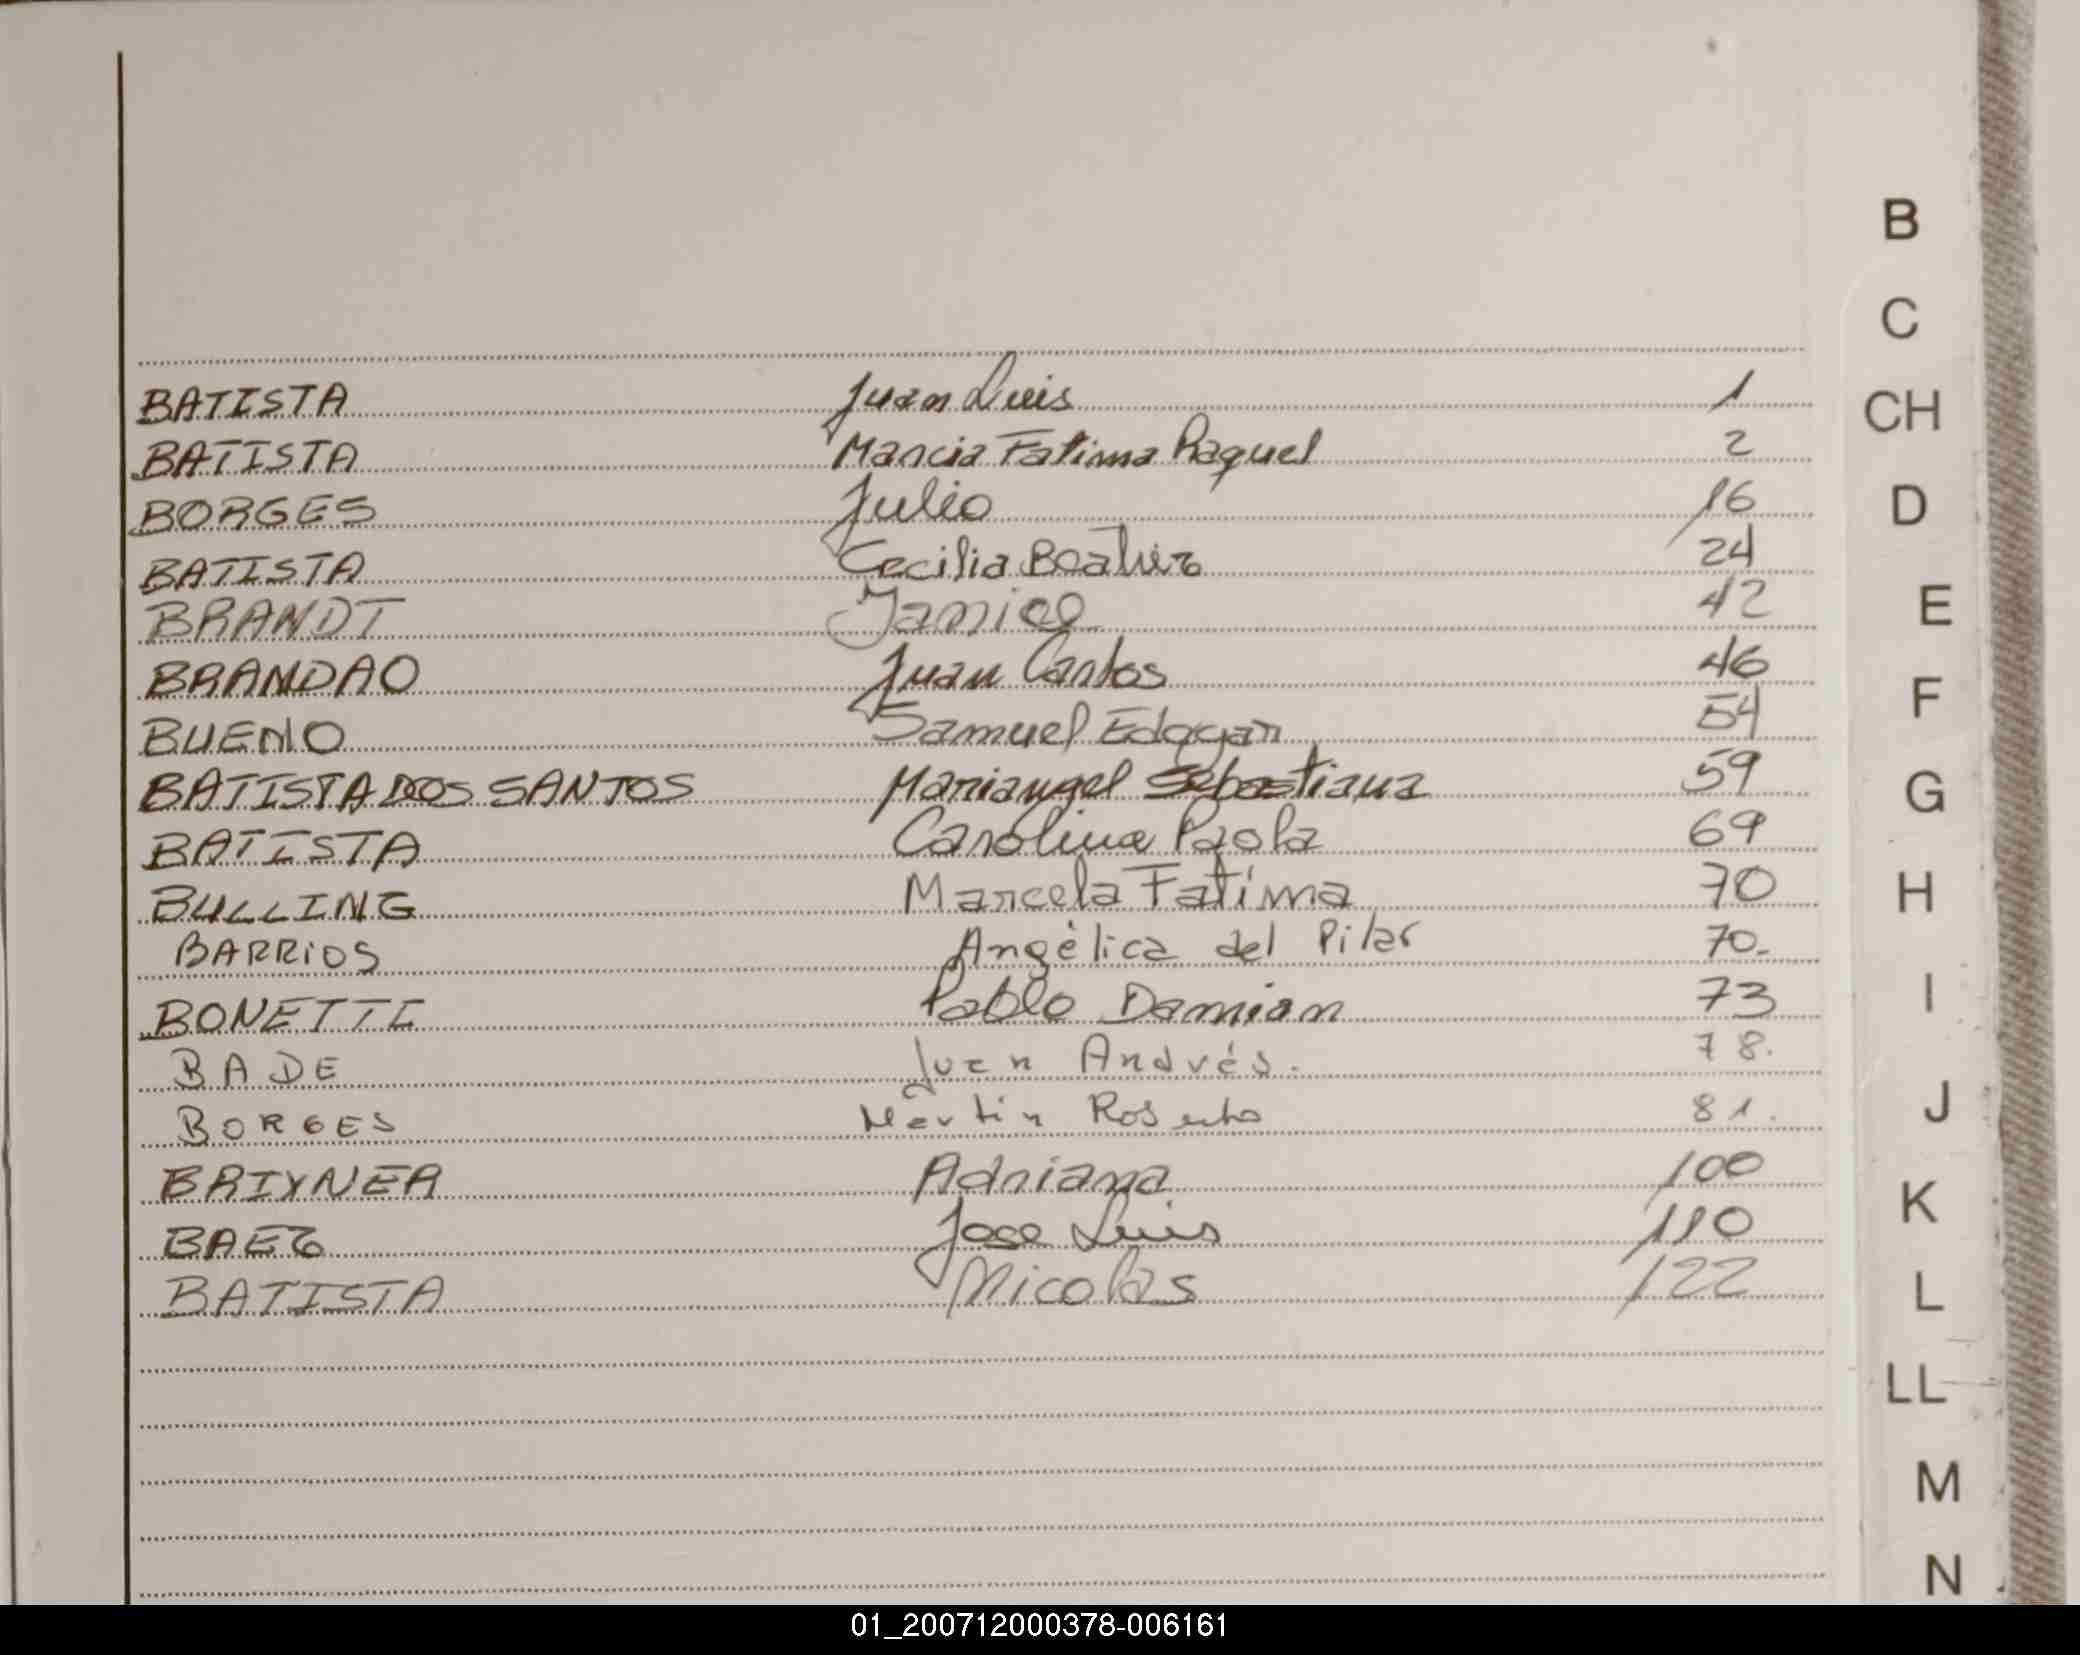 BATISTA Juan Luis 1
BATISTA Marcia Fatima Raquel 2
BORGES Julio 16
BATISTA Cecilia Beatriz 24
BRANDT Janice 42
BRANDAO Juan Carlos 46
BUENO Samuel Edgar 54
BATISTA DOS SANTOS Mariangel Sebastiana 59
BATISTA Carolina Paola 69
BULLING Marcela Fatima 70
BARRIOS Angélica del Pilar 70.
BONETTI Pablo Damian 73
BADE Juan Andrés. 78.
BORGES Martin Roberto 81.
BRIXNER Adriana 100
BAEZ Jose Luis 110
BATISTA Nicolas 122
B
C
CH
D
E
F
G
H
I
J
K
L
LL
M
N
01_200712000378-006161